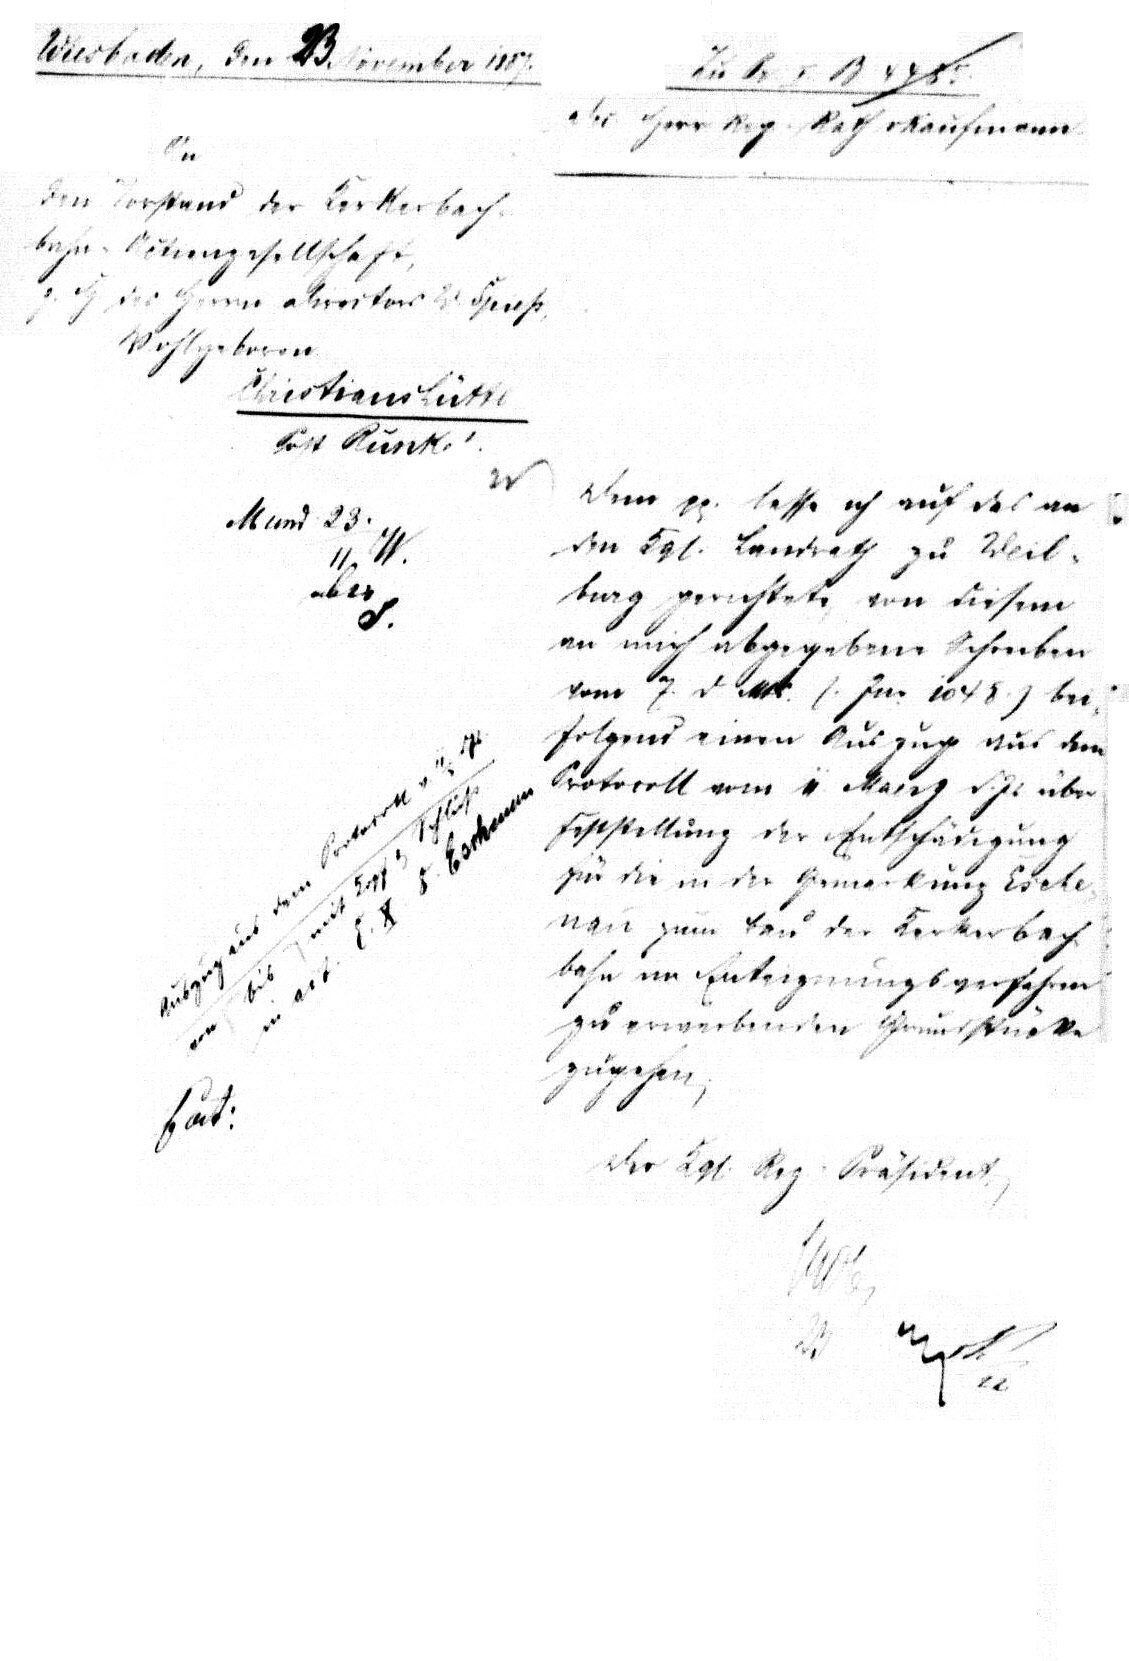 Wiesbaden, den 23 November 1887.
Zu Pr. I. B
Herr Reg. Rath Kaufmann
An
den Vorstand der Kerkerbach-
bahn-Actiengesellschaft,
z. H. des Herrn Directors
Wohlgeboren
Christianshütte
Post Runkel.
Mund 23.
11
Dem pp. lasse ich auf das an
den Kgl. Landrath zu Weil-
burg gerichtete, von diesem
an mich abgegebene Schreiben
vom 7. d. Mts. (J. Nr. 1048.) bei-
folgend einen Auszug aus dem
Protocoll vom 11. Maerz d. Js. über
Feststellung der Entschädigung
für die in der Gemarkung Esche-
nau zum Bau der Kerkerbach-
bahn im Enteignungsverfahren
zu erwerbenden Grundstücke
zugehen.
Auszug aus dem Protocoll v.
von bis mit Schluß
in act.
Der Kgl. Reg. Präsident.
23
22